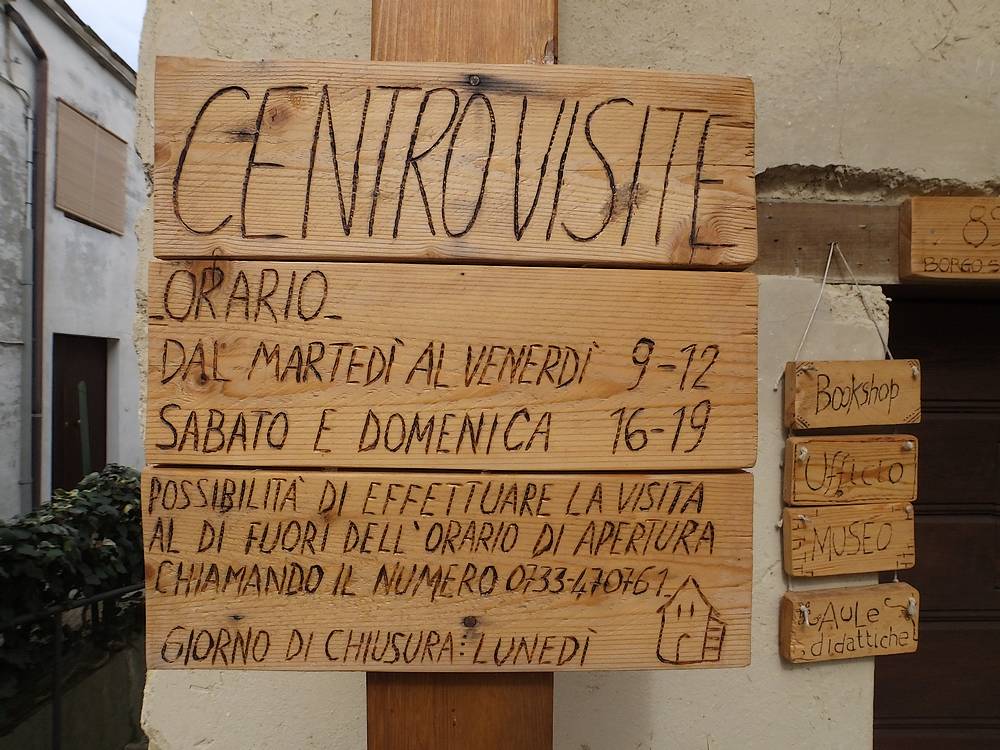 CENTRO VISITE
ORARIO
DAL MARTEDÌ AL VENERDÌ 9-12
SABATO E DOMENICA 16-19
POSSIBILITÀ DI EFFETTUARE LA VISITA
AL DI FUORI DELL'ORARIO DI APERTURA
CHIAMANDO IL NUMERO 0733-470761
GIORNO DI CHIUSURA: LUNEDÌ
BORGO
Bookshop
Ufficio
MUSEO
AULe
didattiche